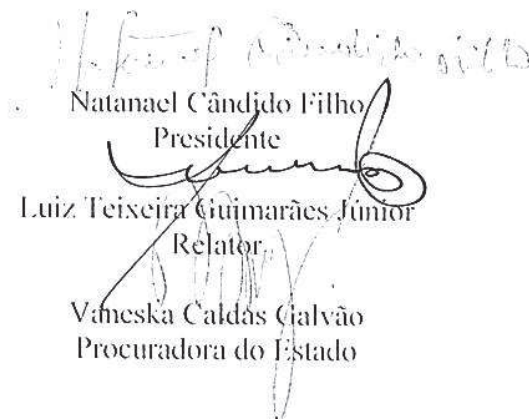 Natanael Cândido Filho
Natanael Cândido Filho
Presidente
Luiz Teixeira Guimarães Júnior
Relator
Vaneska Caldas Galvão
Procuradora do Estado